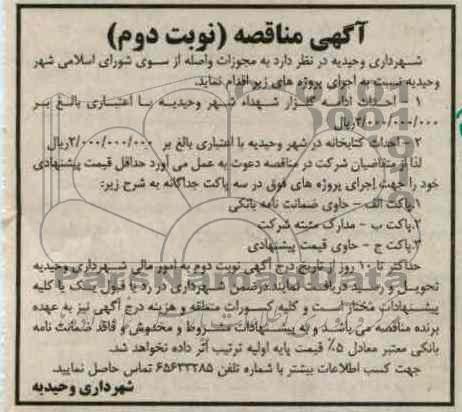 آگهی مناقصه (نوبت دوم)
شهرداری وحیدیه در نظر دارد به مجوزات واصله از سوی شورای اسلامی شهر
وحیدیه نسبت به اجرای پروژه های زیر اقدام نماید.
۱ - احداث ادامه گلزار شهداء شهر وحیدیه با اعتباری بالغ بر
۳/۰۰۰/۰۰۰/۰۰۰ریال
۲ - احداث کتابخانه در شهر وحیدیه با اعتباری بالغ بر ۲/۰۰۰/۰۰۰/۰۰۰ریال
لذا از متقاضیان شرکت در مناقصه دعوت به عمل می آورد حداقل قیمت پیشنهادی
خود را جهت اجرای پروژه های فوق در سه پاکت جداگانه به شرح زیر:
۱.پاکت الف – حاوی ضمانت نامه بانکی
۲.پاکت ب – مدارک مثبته شرکت
۳.پاکت ج – حاوی قیمت پیشنهادی
حداکثر تا ۱۰ روز از تاریخ درج آگهی نوبت دوم به امور مالی شهرداری وحیدیه
تحویل و رسید دریافت نمایند.درضمن شهرداری در رد یا قبول یک یا کلیه
پیشنهادات مختار است و کلیه کسورات متعلقه و هزینه درج آگهی نیز به عهده
برنده مناقصه می باشد و به پیشنهادات مشروط و مخدوش و فاقد ضمانت نامه
بانکی معتبر معادل ۵٪ قیمت پایه اولیه ترتیب اثر داده نخواهد شد.
جهت کسب اطلاعات بیشتر با شماره تلفن ۶۵۶۳۳۲۸۵ تماس حاصل نمایید.
شهرداری وحیدیه